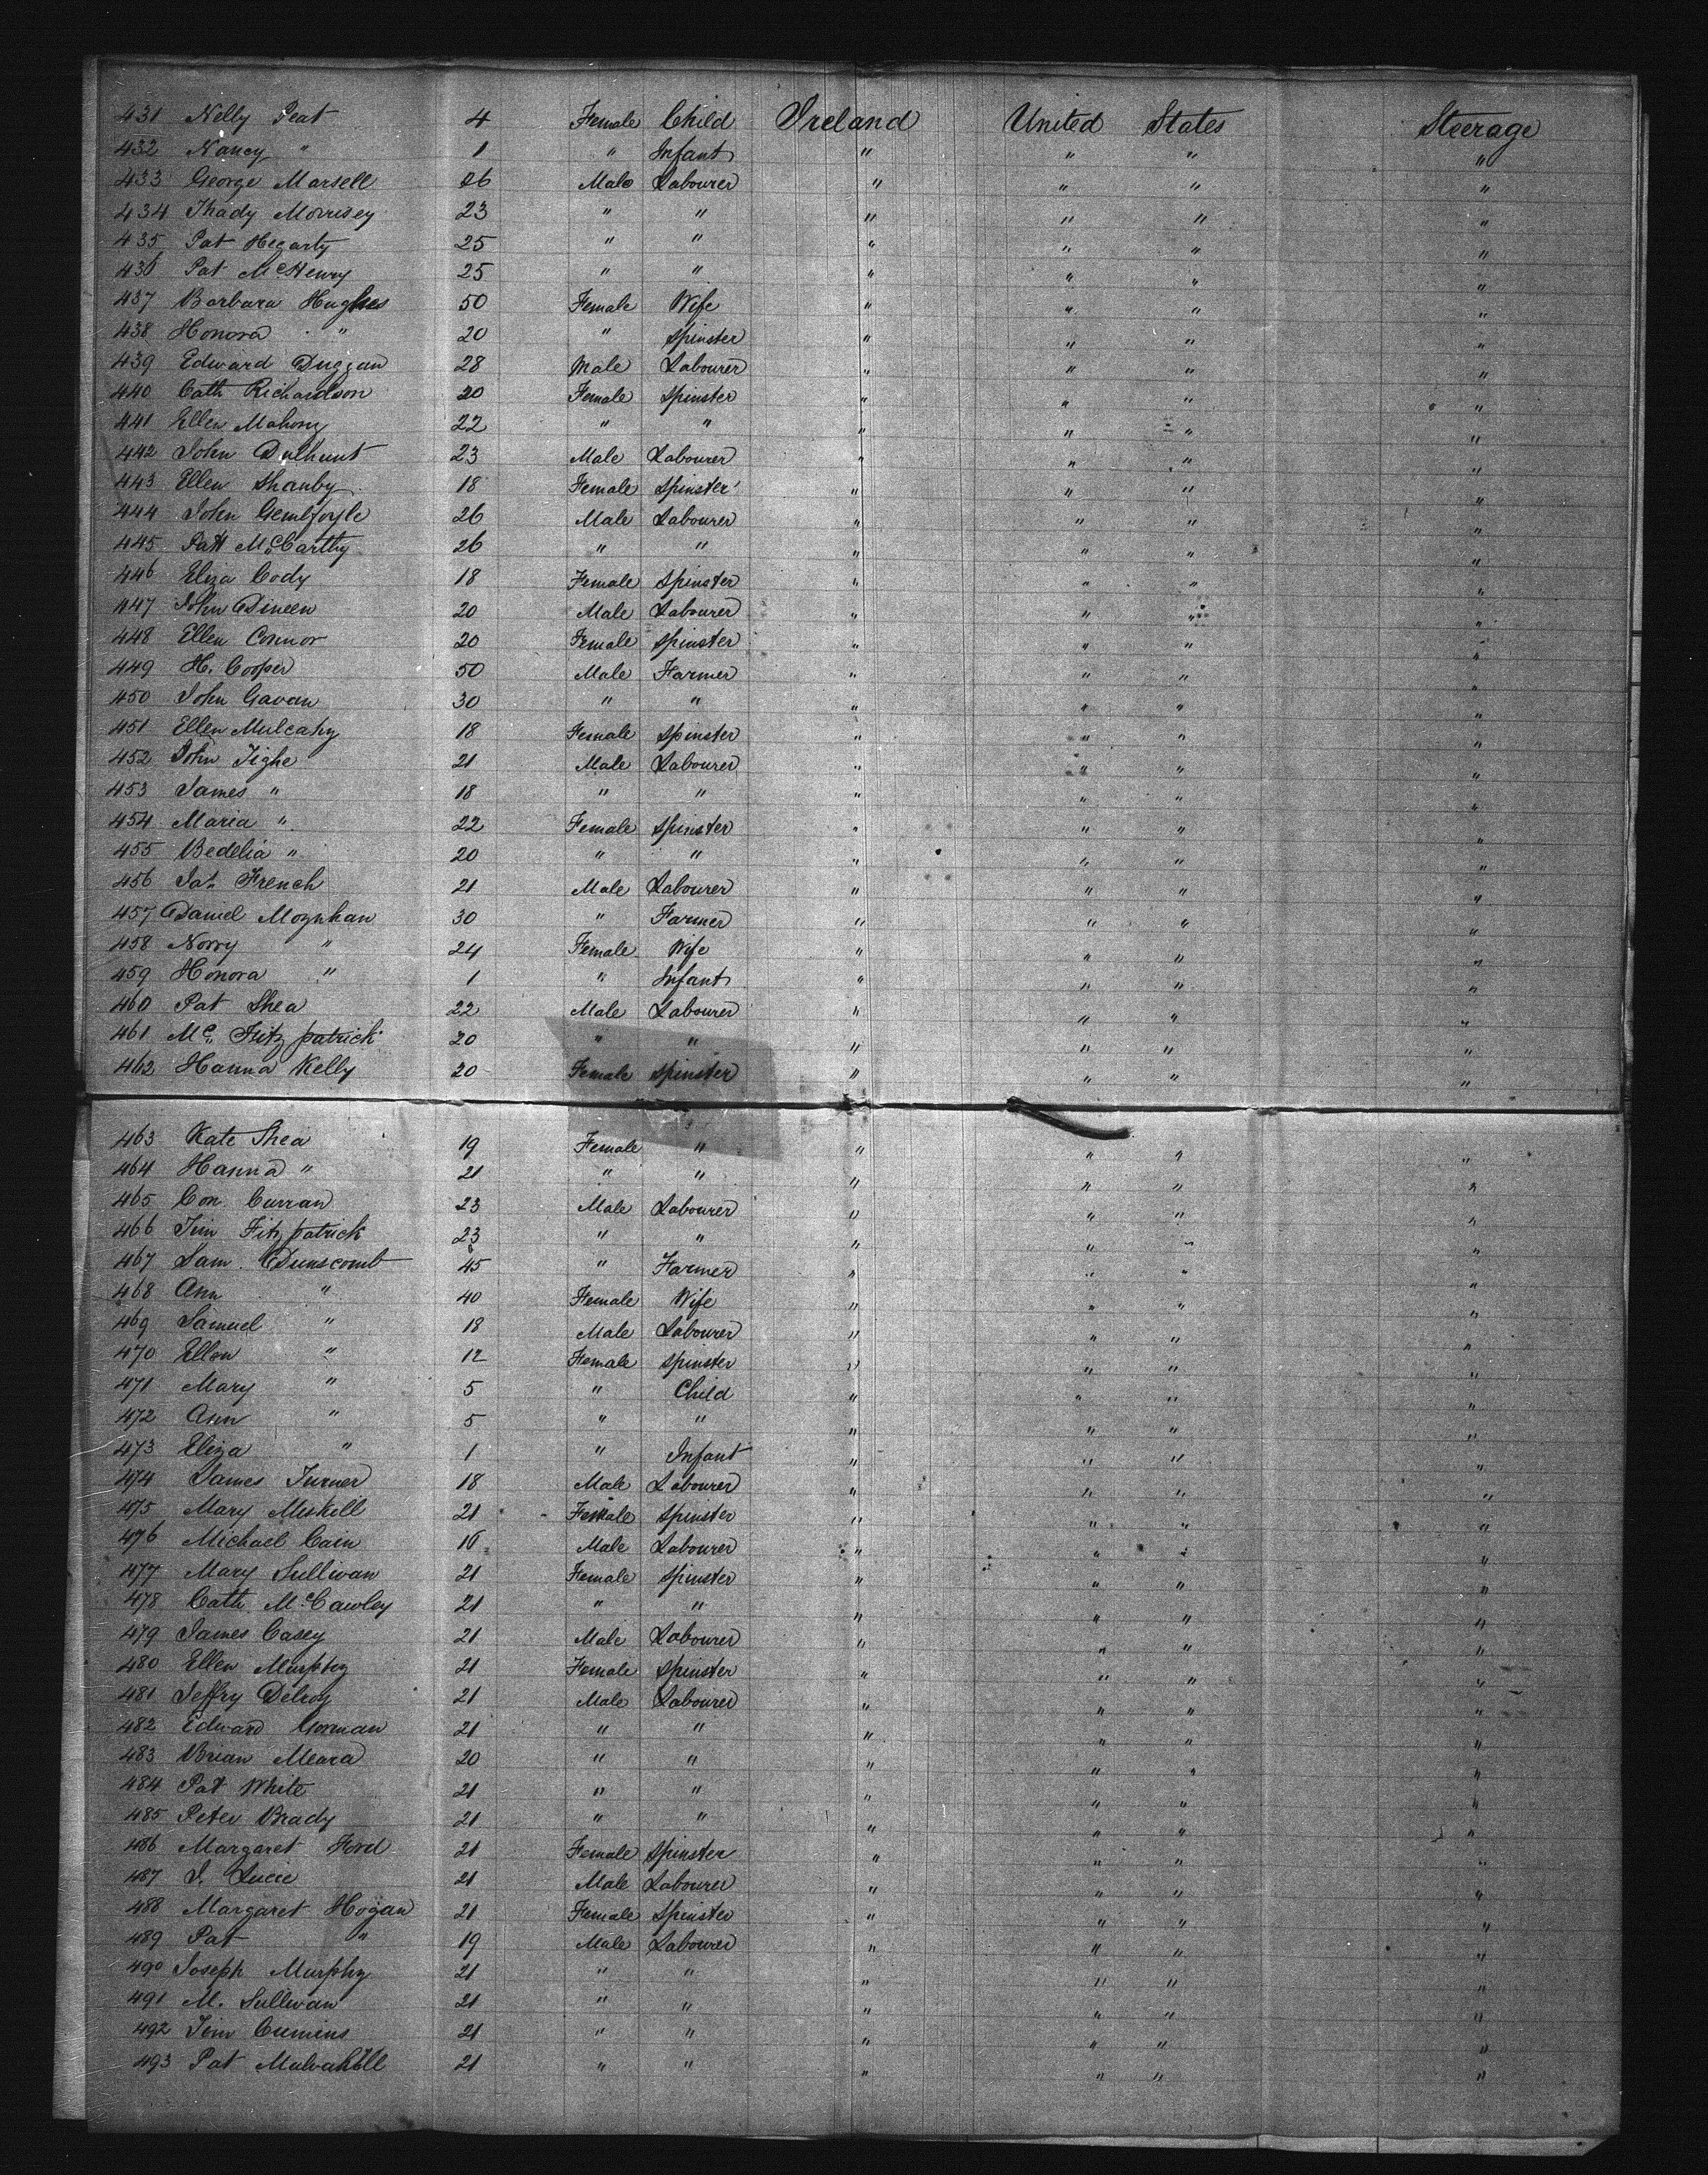 431 Nelly Peat 4 Female Child Ireland United States Steerage
432 Nancy " 1 " Infant " " " "
433 George Marsell 26 Male Labourer " " " "
434 Thady Morrisey 23 " " " " " "
435 Pat Hegarty 25 " " " " " "
436 Pat McHenry 25 " " " " " "
437 Barbara Hughes 50 Female Wife " " " "
438 Honora " 20 " Spinster " " " "
439 Edward Duggan 28 Male Labourer " " " "
440 Cath Richardson 20 Female Spinster " " " "
441 Ellen Mahony 22 " " " " " "
442 John Dulhunt 23 Male Labourer " " " "
443 Ellen Shanby 18 Female Spinster " " " "
444 John 26 Male Labourer " " " "
445 Patt McCarthy 26 " " " " " "
446 Eliza Cody 18 Female Spinster " " " "
447 John Dineen 20 Male Labourer " " " "
448 Ellen Connor 20 Female Spinster " " " "
449 H. Cooper 50 Male Farmer " " " "
450 John Gavan 30 " " " " " "
451 Ellen Mulcahy 18 Female Spinster " " " "
452 John Tighe 21 Male Labourer " " " "
453 James " 18 " " " " " "
454 Maria " 22 Female Spinster " " " "
455 Bedelia " 20 " " " " " "
456 Pat. French 21 Male Labourer " " " "
457 Daniel Moynhan 30 " Farmer " " " "
458 Norry " 24 Female Wife " " " "
459 Honora " 1 " Infant " " " "
460 Pat Shea 22 Male Labourer " " " "
461 Mc. Fitzpatrick 20 " " " " " "
462 Hanna Kelly 20 Female Spinster " " " "
463 Kate Shea 19 Female " " " " "
464 Hanna " 21 " " " " " "
465 Con. Curran 23 Male Labourer " " " "
466 Tim Fitzpatrick 23 " " " " " "
467 Sam. Dunscomb 45 " Farmer " " " "
468 Ann " 40 Female Wife " " " "
469 Samuel " 18 Male Labourer " " " "
470 Ellen " 12 Female Spinster " " " "
471 Mary " 5 " Child " " " "
472 Ann " 5 " " " " " "
473 Eliza " 1 " Infant " " " "
474 James Turner 18 Male Labourer " " " "
475 Mary Miskell 21 Female Spinster " " " "
476 Michael Cain 16 Male Labourer " " " "
477 Mary Sullivan 21 Female Spinster " " " "
478 Cath McCawley 21 " " " " " "
479 James Casey 21 Male Labourer " " " "
480 Ellen Murphy 21 Female Spinster " " " "
481 Jeffry Delroy 21 Male Labourer " " " "
482 Edward Gorman 21 " " " " " "
483 Brian Meara 20 " " " " " "
484 Pat White 21 " " " " " "
485 Peter Brady 21 " " " " " "
486 Margaret Ford 21 Female Spinster " " " "
487 Lucie 21 Male Labourer " " " "
488 Margaret Hogan 21 Female Spinster " " " "
489 Pat " 19 Male Labourer " " " "
490 Joseph Murphy 21 " " " " " "
491 M. Sullivan 21 " " " " " "
492 Tim Cumins 21 " " " " " "
493 Pat Mulvahill 21 " " " " " "